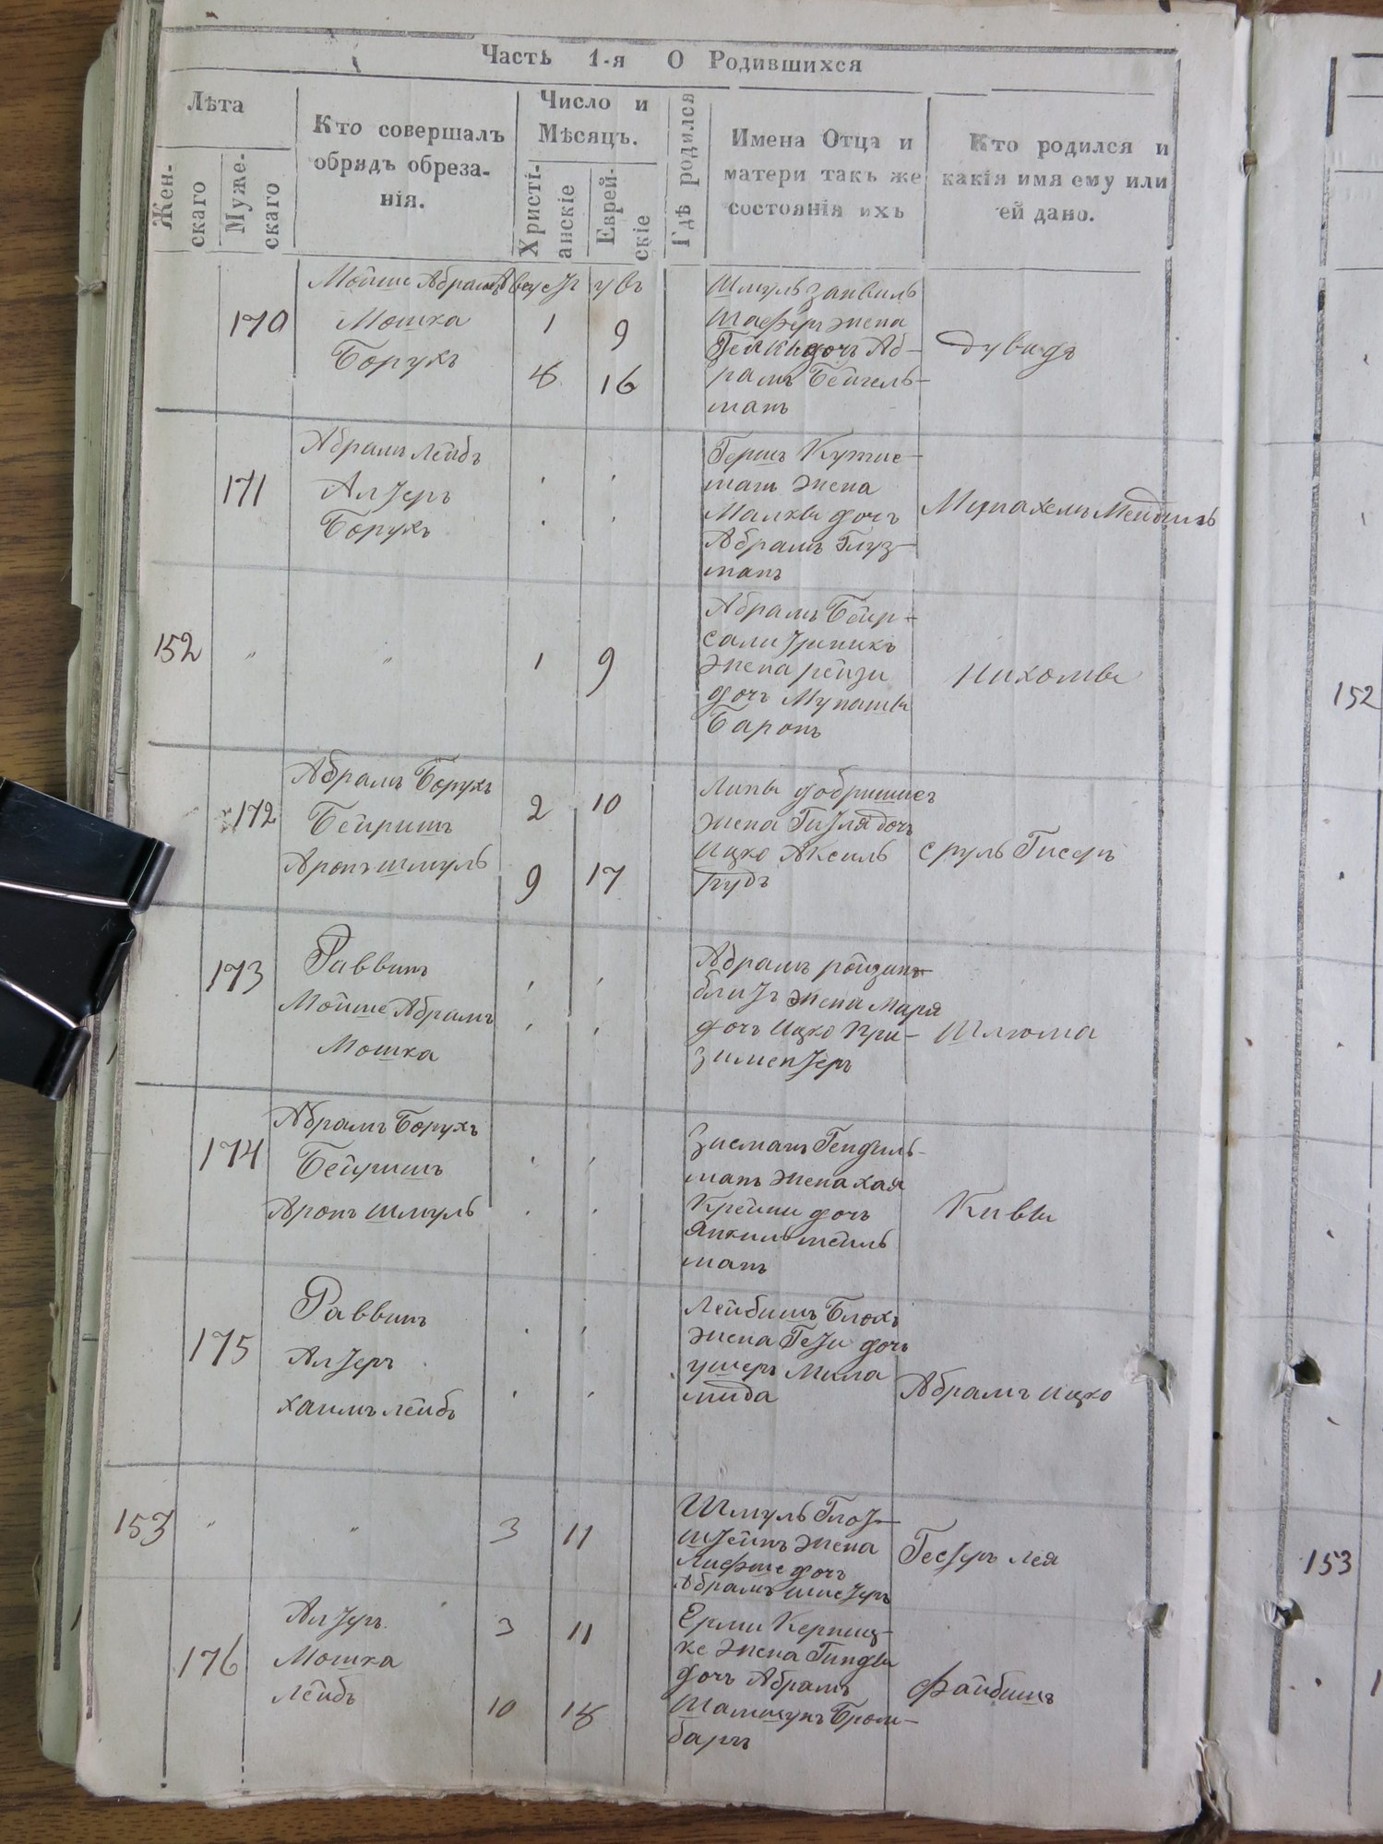 Часть 1-я О Родившихся
Лѣта
Жен-
скаго
Муже-
скаго
Кто совершалъ
обрядъ обреза-
нія.
Число и
Мѣсяцъ.
Христі-
анскіе
Еврей-
скіе
Гдѣ родился
Имена Отца и
матери такъ же
состоянія ихъ
Кто родился и
какія имя ему или
ей дано.
170
Мойше Абрамъ
Мошка
Борухъ
Август
1
8
увъ
9
16
Шмуль Занвиль
Шафир жена
дочь Аб-
рамъ Бейгель-
манъ
Дувидъ
171
Абрамъ Лейбъ
Алтеръ
Борухъ
Гершъ Кутне-
манъ жена
Малквы дочь
Абрамъ Глуз-
манъ
Мунахемъ Мендиль
152
"
"
1
9
Абрамъ Бейр-
жена рейзи
дочь Мунашы
Баронъ
Нихомы
172
Абрамъ Борухъ
Бейришъ
Аронъ шмуль
2
9
10
17
Липы
жена Гитля дочь
Ицко Аксиль
Грубъ
сруль Гисеръ
173
Раввинъ
Мойше Абрамъ
Мошка
Абрамъ ройзин-
блитъ жена Маря
дочь Ицко При-
зиментеръ
Шлюма
174
Абрамъ Борухъ
Бейришъ
Аронъ шмуль
Зисманъ Гендиль-
манъ жена хая
Крейни дочь
Янкиль
манъ
Кивы
175
Раввинъ
Алтеръ
хаимъ лейбъ
Лейбишъ Блохъ
жена Гети дочь
ушеръ Мила
Абрамъ Ицко
153
"
"
3
11
Шмуль Глот-
штейнъ жена
дочь
Абрамъ шистеръ
Гестеръ лея
176
Алтеръ
Мошка
Лейбъ
3
10
11
18
Ерми Керниц-
ке жена Гинды
дочь Абрамъ
Бром-
бергъ
Файбишъ
152
153